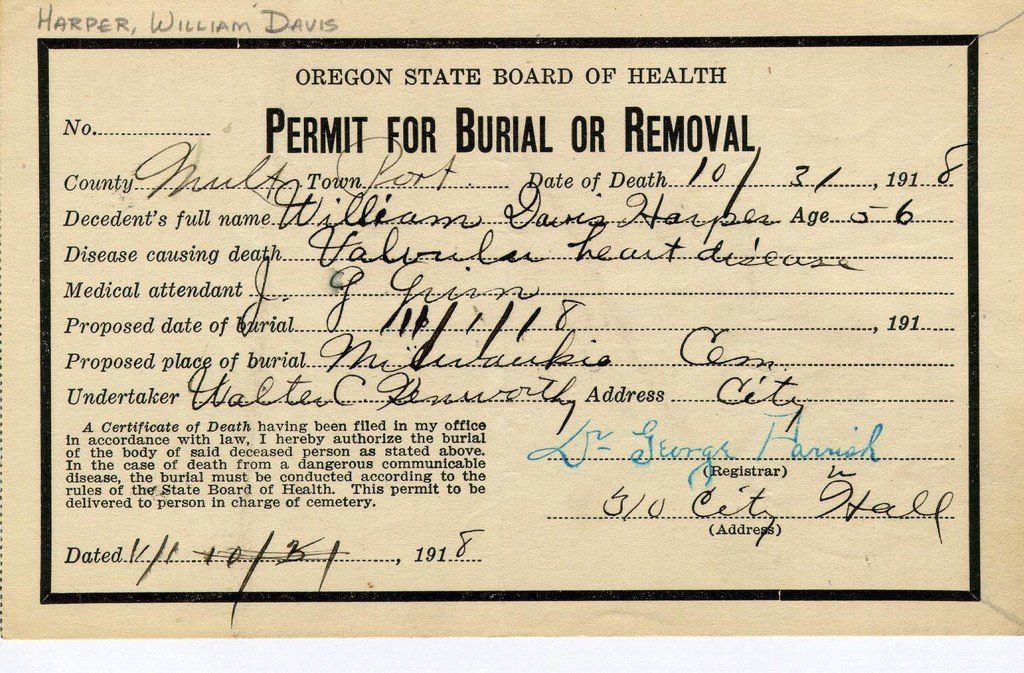 HARPER, WILLIAM DAVIS
OREGON STATE BOARD OF HEALTH
No.
PERMIT FOR BURIAL OR REMOVAL
County Mult Town Port Date of Death 10/31, 1918
Decedent's full name William Davis Harper Age 56
Disease causing death Valvular heart disease
Medical attendant J. G
Proposed date of burial 11/1/18, 191
Proposed place of burial Milwaukie Cem
Undertaker Walter C Kenworthy Address City
A Certificate of Death having been filed in my office
in accordance with law, I hereby authorize the burial
of the body of said deceased person as stated above.
In the case of death from a dangerous communicable
disease, the burial must be conducted according to the
rules of the State Board of Health. This permit to be
delivered to person in charge of cemetery.
Dr George Parrish
(Registrar)
310 City Hall
(Address)
Dated 1/1 10/31, 1918